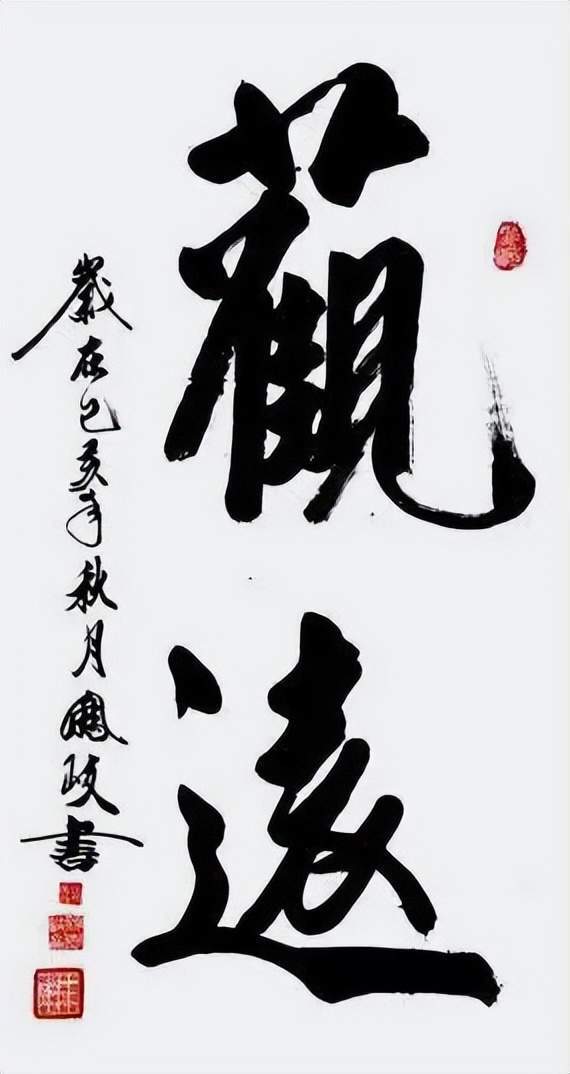 觀遠
歲在己亥年秋月鳳岐書